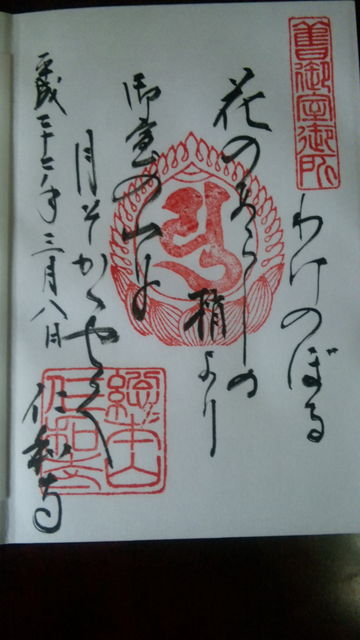 舊御室御所
わけのぼる
花のあらしの
梢より
御室の山に
月ぞかゝやく
總本山
仁和寺
仁和寺
平成二十七年三月八日